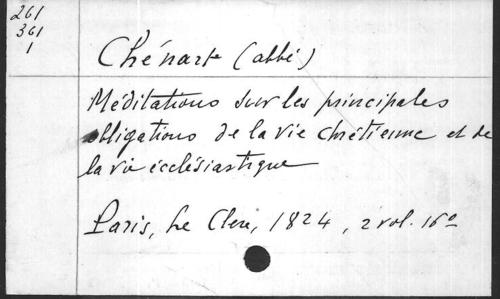 261
361
1
Chénart (abbé)
Méditations sur les principales
obligations de la vie chrétienne et de
la vie écclésiastique
Paris, Le Clere, 1824, 2 vol. 16º